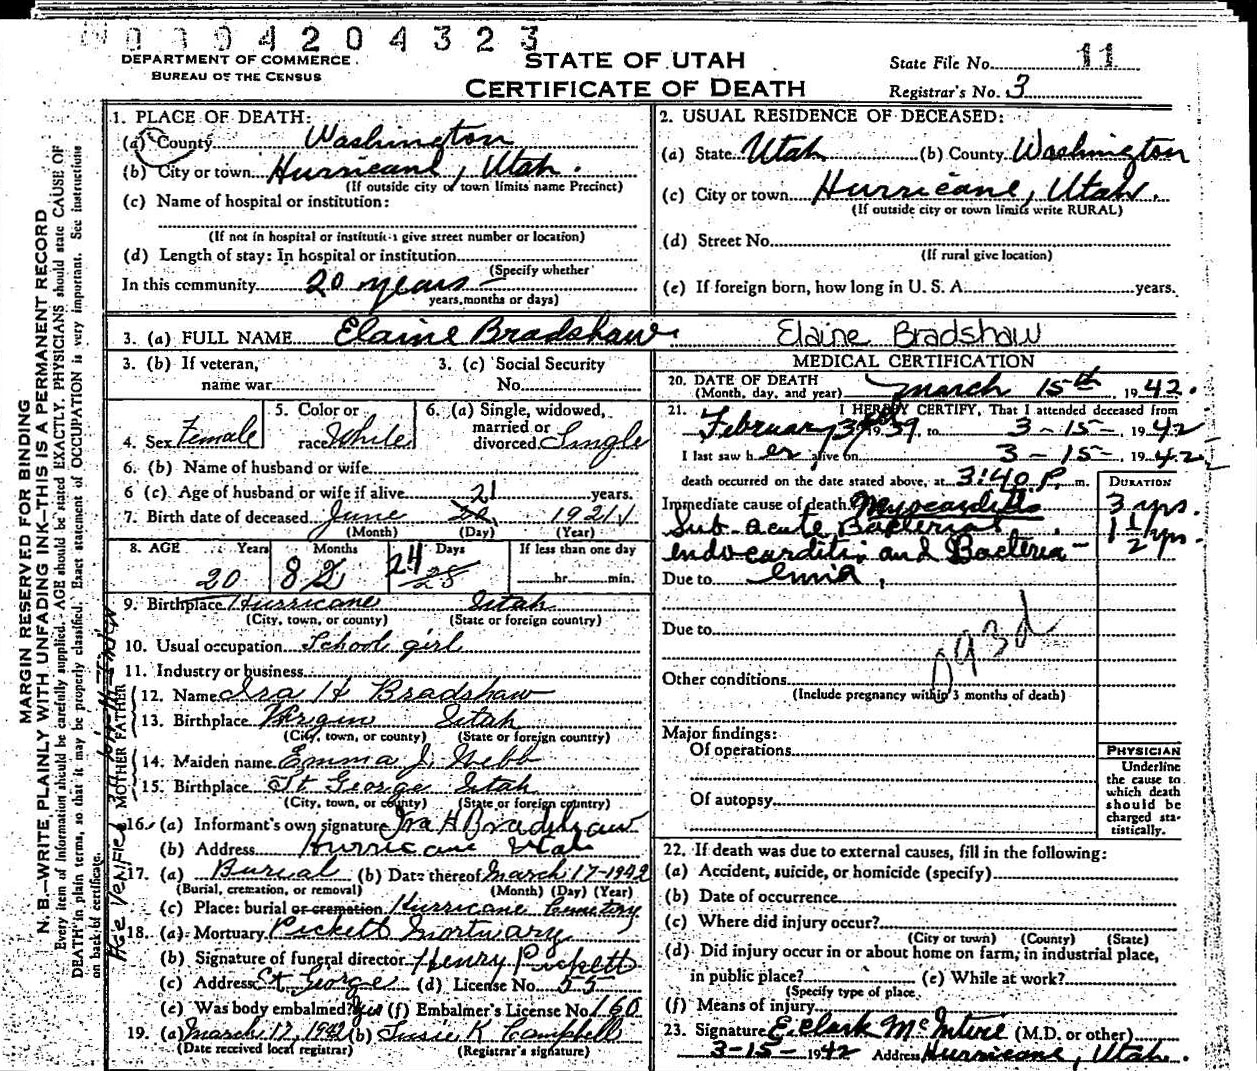 0 0 9 4 2 0 4 3 2 3
DEPARTMENT OF COMMERCE
BUREAU OF THE CENSUS
STATE OF UTAH
CERTIFICATE OF DEATH
State File No. 11
Registrar's No. 3
1. PLACE OF DEATH:
(a) County Washington
(b) City or town Hurricane, Utah.
(If outside city or town limits name Precinct)
(c) Name of hospital or institution:
(If not in hospital or institution give street number or location)
(d) Length of stay: In hospital or institution
(Specify whether
In this community 20 years
years, months or days)
2. USUAL RESIDENCE OF DECEASED:
(a) State Utah (b) County Washington
(c) City or town Hurricane, Utah.
(If outside city or town limits write RURAL)
(d) Street No.
(If rural give location)
(e) If foreign born, how long in U. S. A. years.
3. (a) FULL NAME Elaine Bradshaw. Elaine Bradshaw
3. (b) If veteran,
name war
3. (c) Social Security
No.
4. Sex Female
5. Color or
race White
6. (a) Single, widowed,
married or
divorced Single
6. (b) Name of husband or wife
6 (c) Age of husband or wife if alive years.
7. Birth date of deceased June 21 1921
(Month) (Day) (Year)
8. AGE Years Months Days If less than one day
20 8 24 28 hr. min.
9. Birthplace Hurricane Utah
(City, town, or county) (State or foreign country)
10. Usual occupation School girl
11. Industry or business
FATHER
12. Name Ira H Bradshaw
13. Birthplace Virgin Utah
(City, town, or county) (State or foreign country)
MOTHER
14. Maiden name Emma J. Webb
15. Birthplace St George Utah
(City, town, or county) (State or foreign country)
16. (a) Informant's own signature Ira H Bradshaw
(b) Address Hurricane Utah
17. (a) Burial (b) Date thereof March 17-1942
(Burial, cremation, or removal) (Month) (Day) (Year)
(c) Place: burial or cremation Hurricane Cemetery
18. (a) Mortuary Pickett Mortuary
(b) Signature of funeral director Henry Pickett
(c) Address St. George (d) License No. 55
(e) Was body embalmed? Yes (f) Embalmer's License No. 160
19. (a) March 17, 1942 (b) Susie K Campbell
(Date received local registrar) (Registrar's signature)
MEDICAL CERTIFICATION
20. DATE OF DEATH
(Month, day, and year) March 15th, 1942.
21. I HEREBY CERTIFY, That I attended deceased from
February 3rd 1939, to 3-15-, 1942
I last saw her alive on 3-15-, 1942
death occurred on the date stated above, at 3:40 P. m.
DURATION
Immediate cause of death Myocarditis 3 yrs.
Sub-acute Bacterial 1 1/2 yrs.
endocarditis and Bacteria-
Due to emia.
Due to
093d
Other conditions
(Include pregnancy within 3 months of death)
Major findings:
Of operations
Of autopsy
PHYSICIAN
Underline
the cause to
which death
should be
charged sta-
tistically.
22. If death was due to external causes, fill in the following:
(a) Accident, suicide, or homicide (specify)
(b) Date of occurrence
(c) Where did injury occur?
(City or town) (County) (State)
(d) Did injury occur in or about home on farm, in industrial place,
in public place? (e) While at work?
(Specify type of place
(f) Means of injury
23. Signature E. Clark McIntire (M.D. or other)
3-15-1942 Address Hurricane, Utah.
MARGIN RESERVED FOR BINDING
N. B.—WRITE PLAINLY WITH UNFADING INK—THIS IS A PERMANENT RECORD
Every item of information should be carefully supplied. AGE should be stated EXACTLY. PHYSICIANS should state CAUSE OF
DEATH in plain terms, so that it may be properly classified. Exact statement of OCCUPATION is very important. See instructions
on back of certificate.
Age Verified